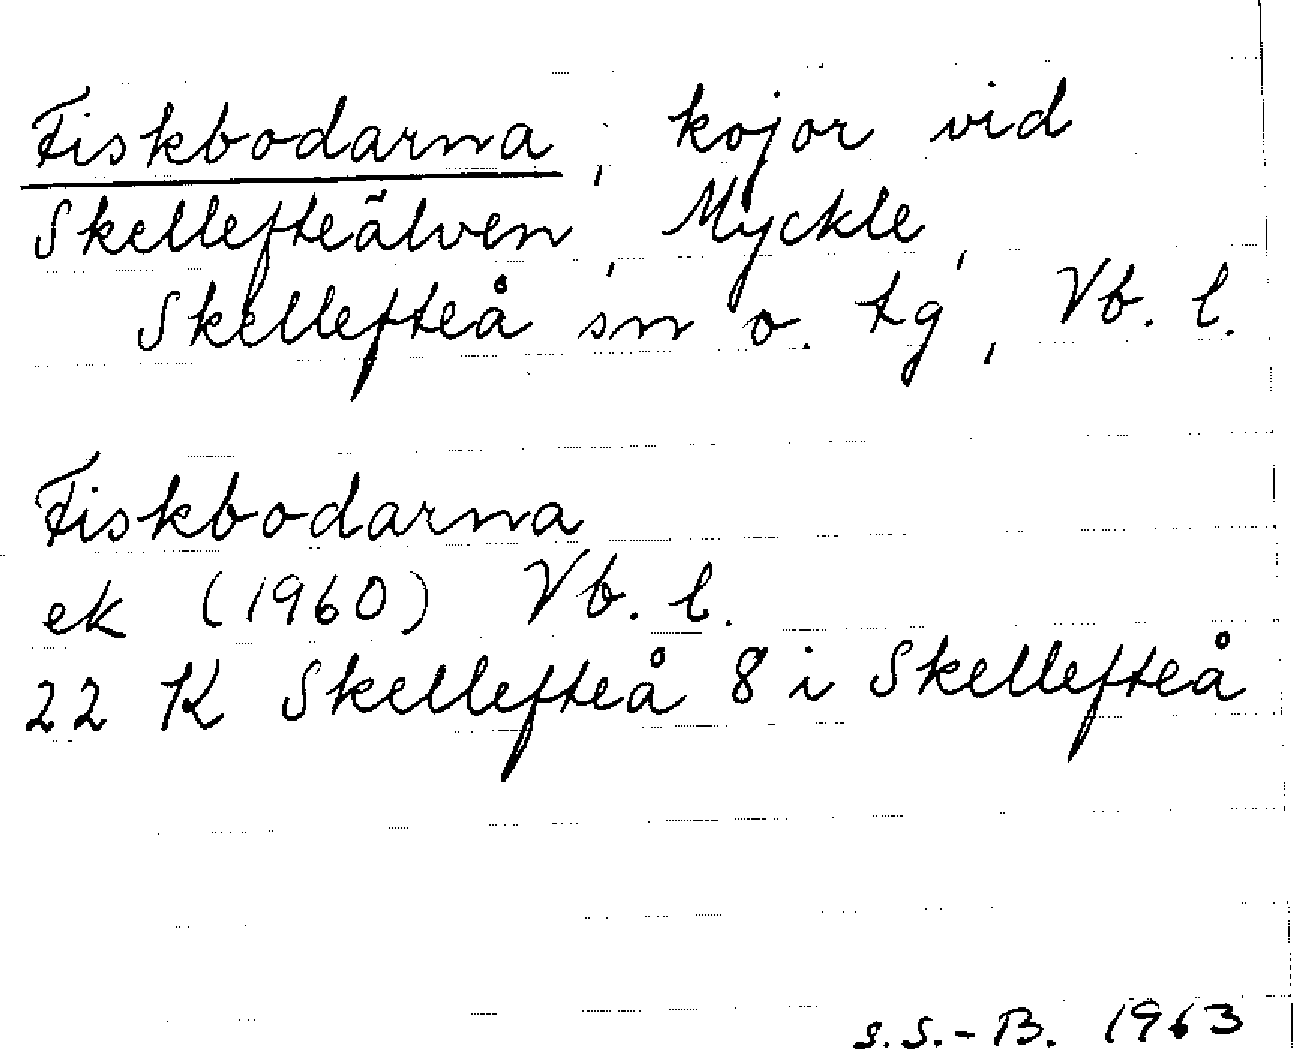 Fiskbodarna, kojor vid
Skellefteälven, Myckle,
Skellefteå sn o. tg, Vb. l.
Fiskbodarna
ek (1960) Vb. l.
22 K Skellefteå 8 i Skellefteå
S.S.-B. 1963